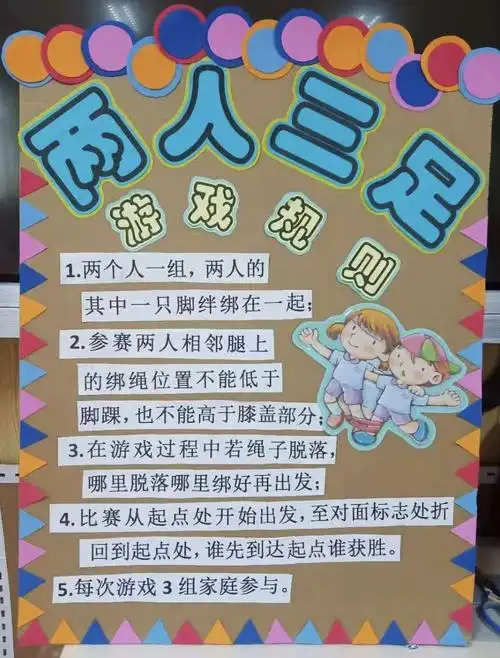 两人三足
游戏规则
1.两个人一组，两人的
其中一只脚绊绑在一起；
2.参赛两人相邻腿上
的绑绳位置不能低于
脚踝，也不能高于膝盖部分；
3.在游戏过程中若绳子脱落，
哪里脱落哪里绑好再出发；
4.比赛从起点处开始出发，至对面标志处折
回到起点处，谁先到达起点谁获胜。
5.每次游戏 3 组家庭参与。